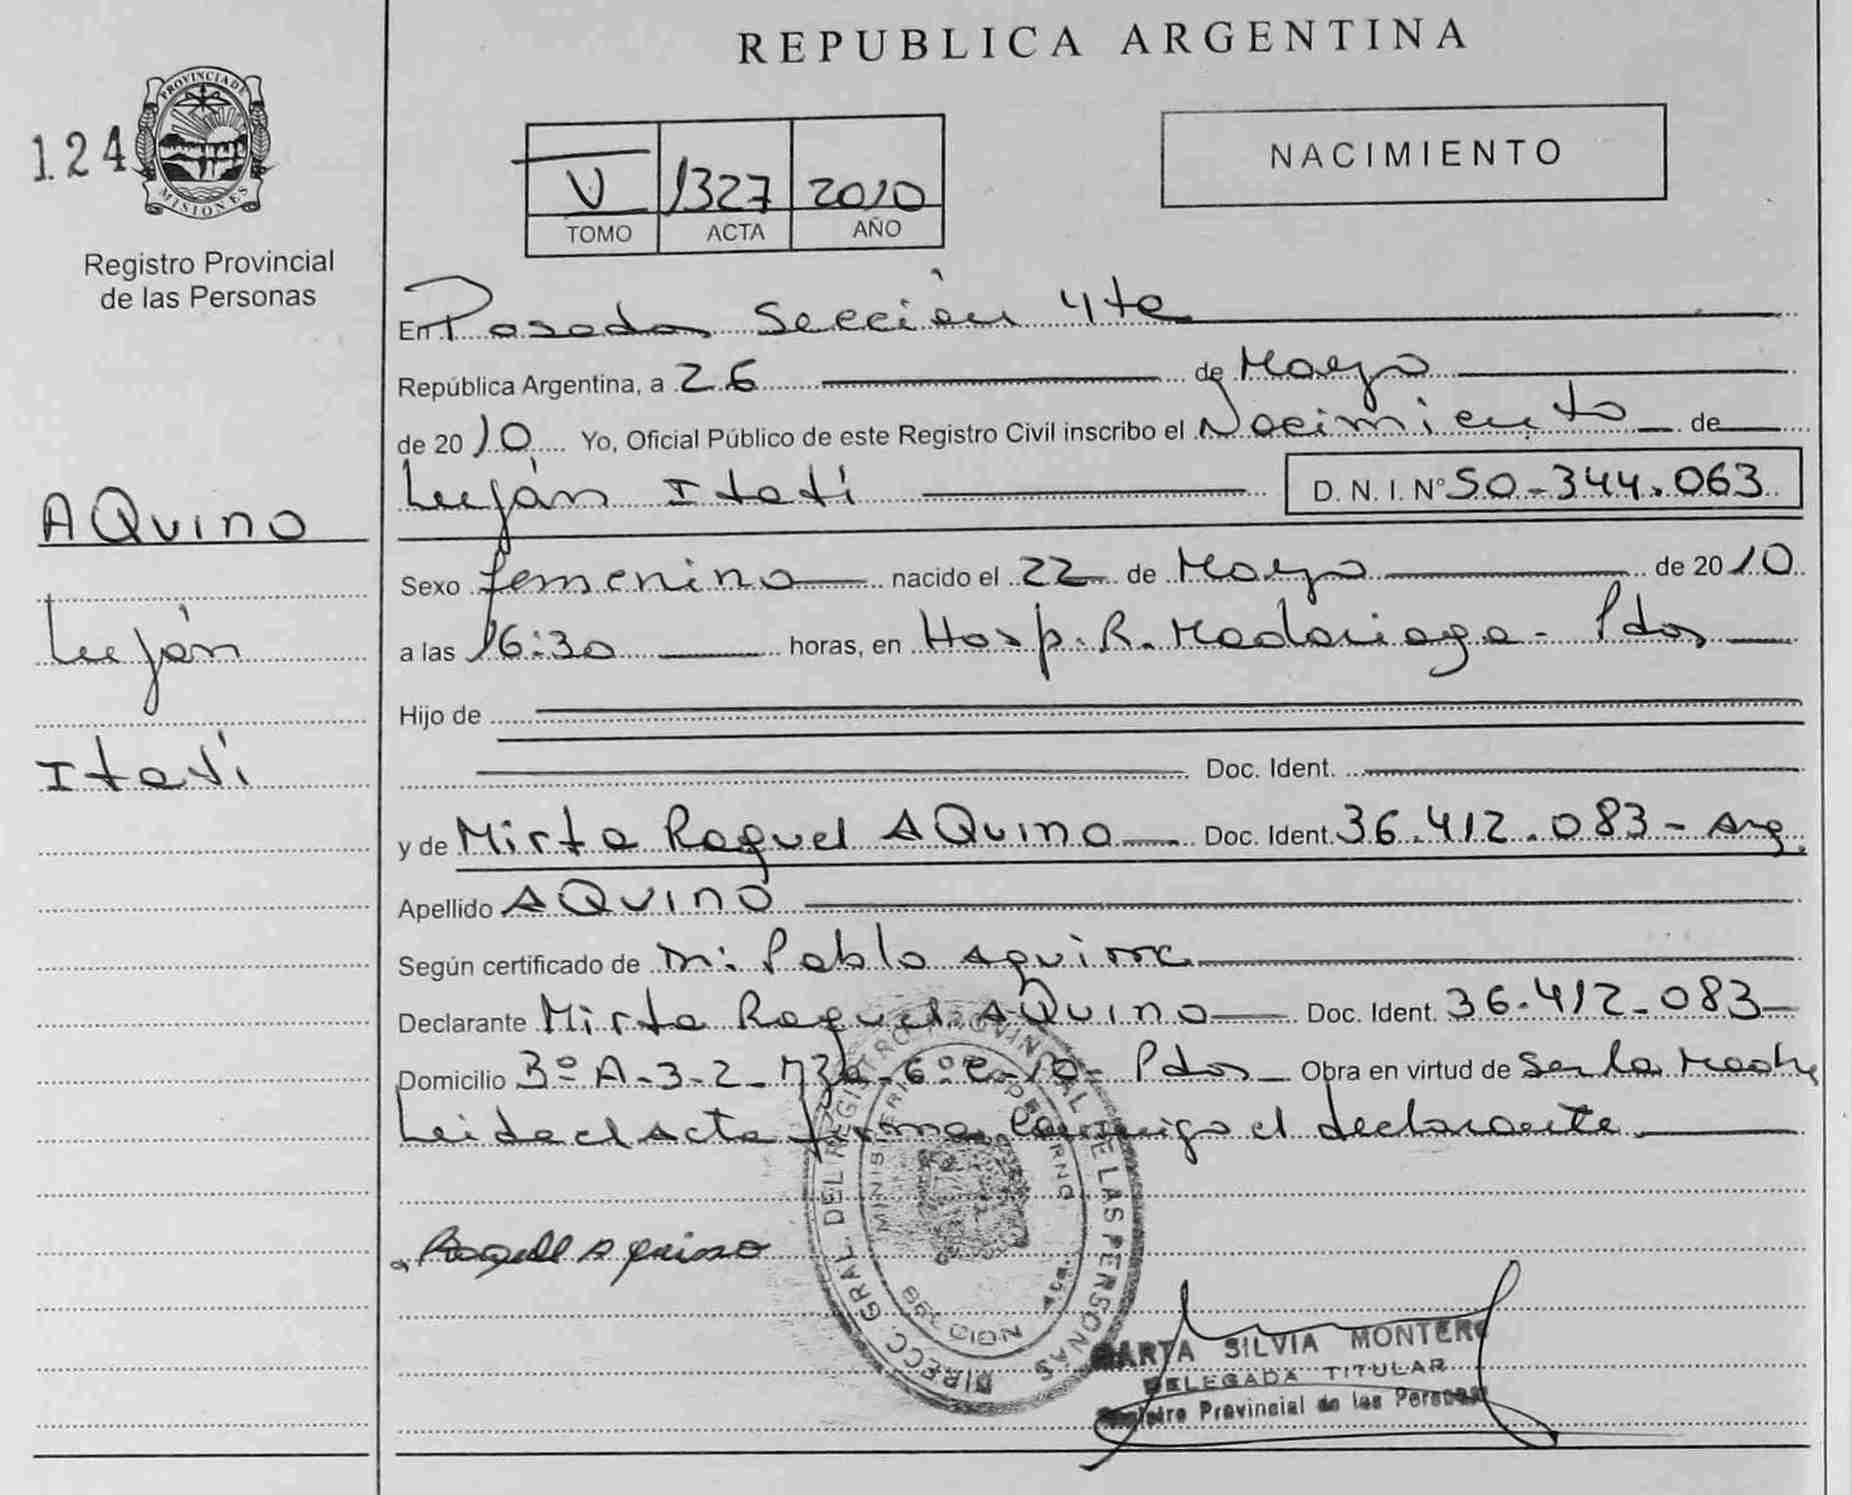 REPUBLICA ARGENTINA
124
PROVINCIA DE MISIONES
Registro Provincial
de las Personas
V 1327 2010
TOMO ACTA AÑO
NACIMIENTO
En Posadas Sección 4ta
República Argentina, a 26 de Mayo
de 2010 Yo, Oficial Público de este Registro Civil inscribo el Nacimiento de
Luján Itatí D. N. I. N° 50-344.063
AQuino
Luján
Itatí
Sexo femenino nacido el 22 de Mayo de 2010
a las 16:30 horas, en Hosp. R. Madariaga - Pdas
Hijo de
Doc. Ident.
y de Mirta Raquel AQuino Doc. Ident. 36.412.083 - Arg.
Apellido AQuino
Según certificado de Pablo Aguirre
Declarante Mirta Raquel AQuino Doc. Ident. 36-412-083
Domicilio 3º A-3-2- Pdas Obra en virtud de Ser la Madre
Leida el Acta firma conmigo el declarante
Raquel Aquino
DIRECC. GRAL. DEL REGISTRO PROVINCIAL DE LAS PERSONAS
MINISTERIO GOBIERNO
SECCION
MARTA SILVIA MONTERO
DELEGADA TITULAR
Registro Provincial de las Personas